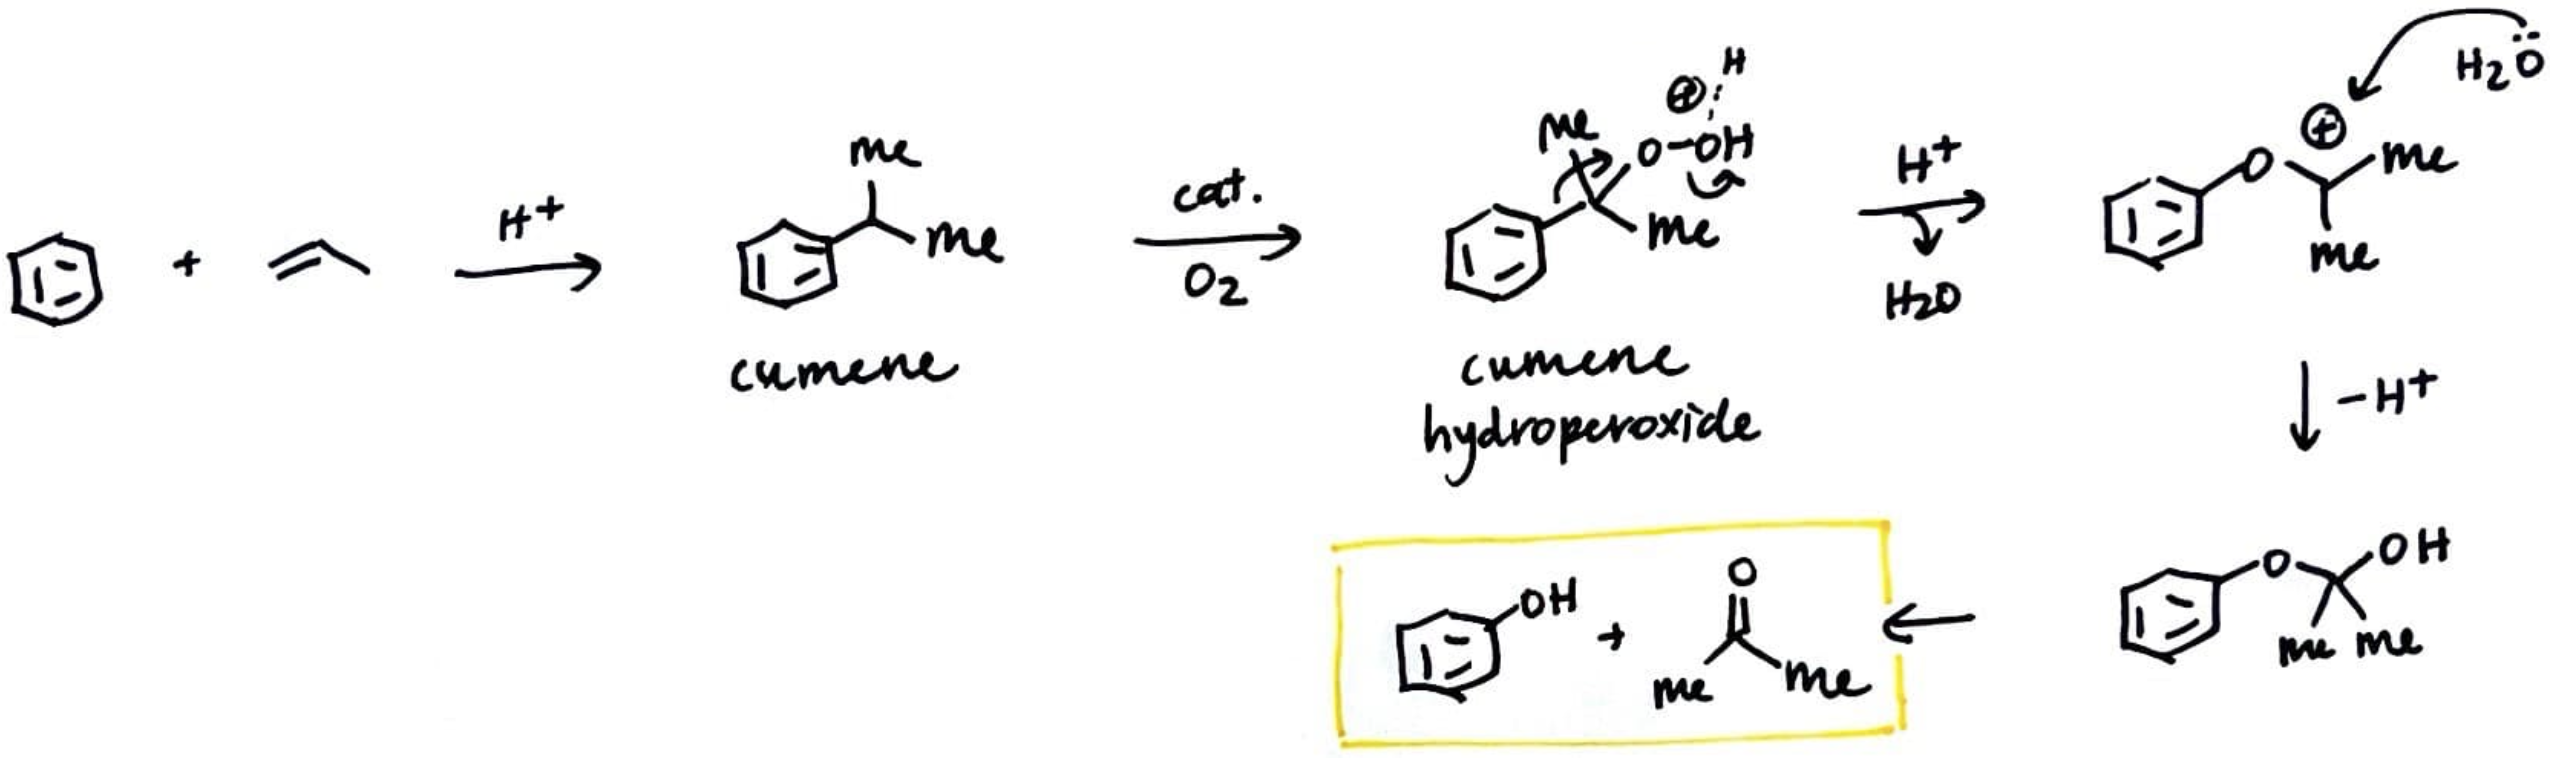 +
H+
Me
Me
cumene
cat.
O2
Me
⊕
H
O-OH
Me
cumene
hydroperoxide
H+
H2O
O
⊕
Me
Me
H2Ö
-H+
O
OH
Me Me
OH
+
O
Me
Me